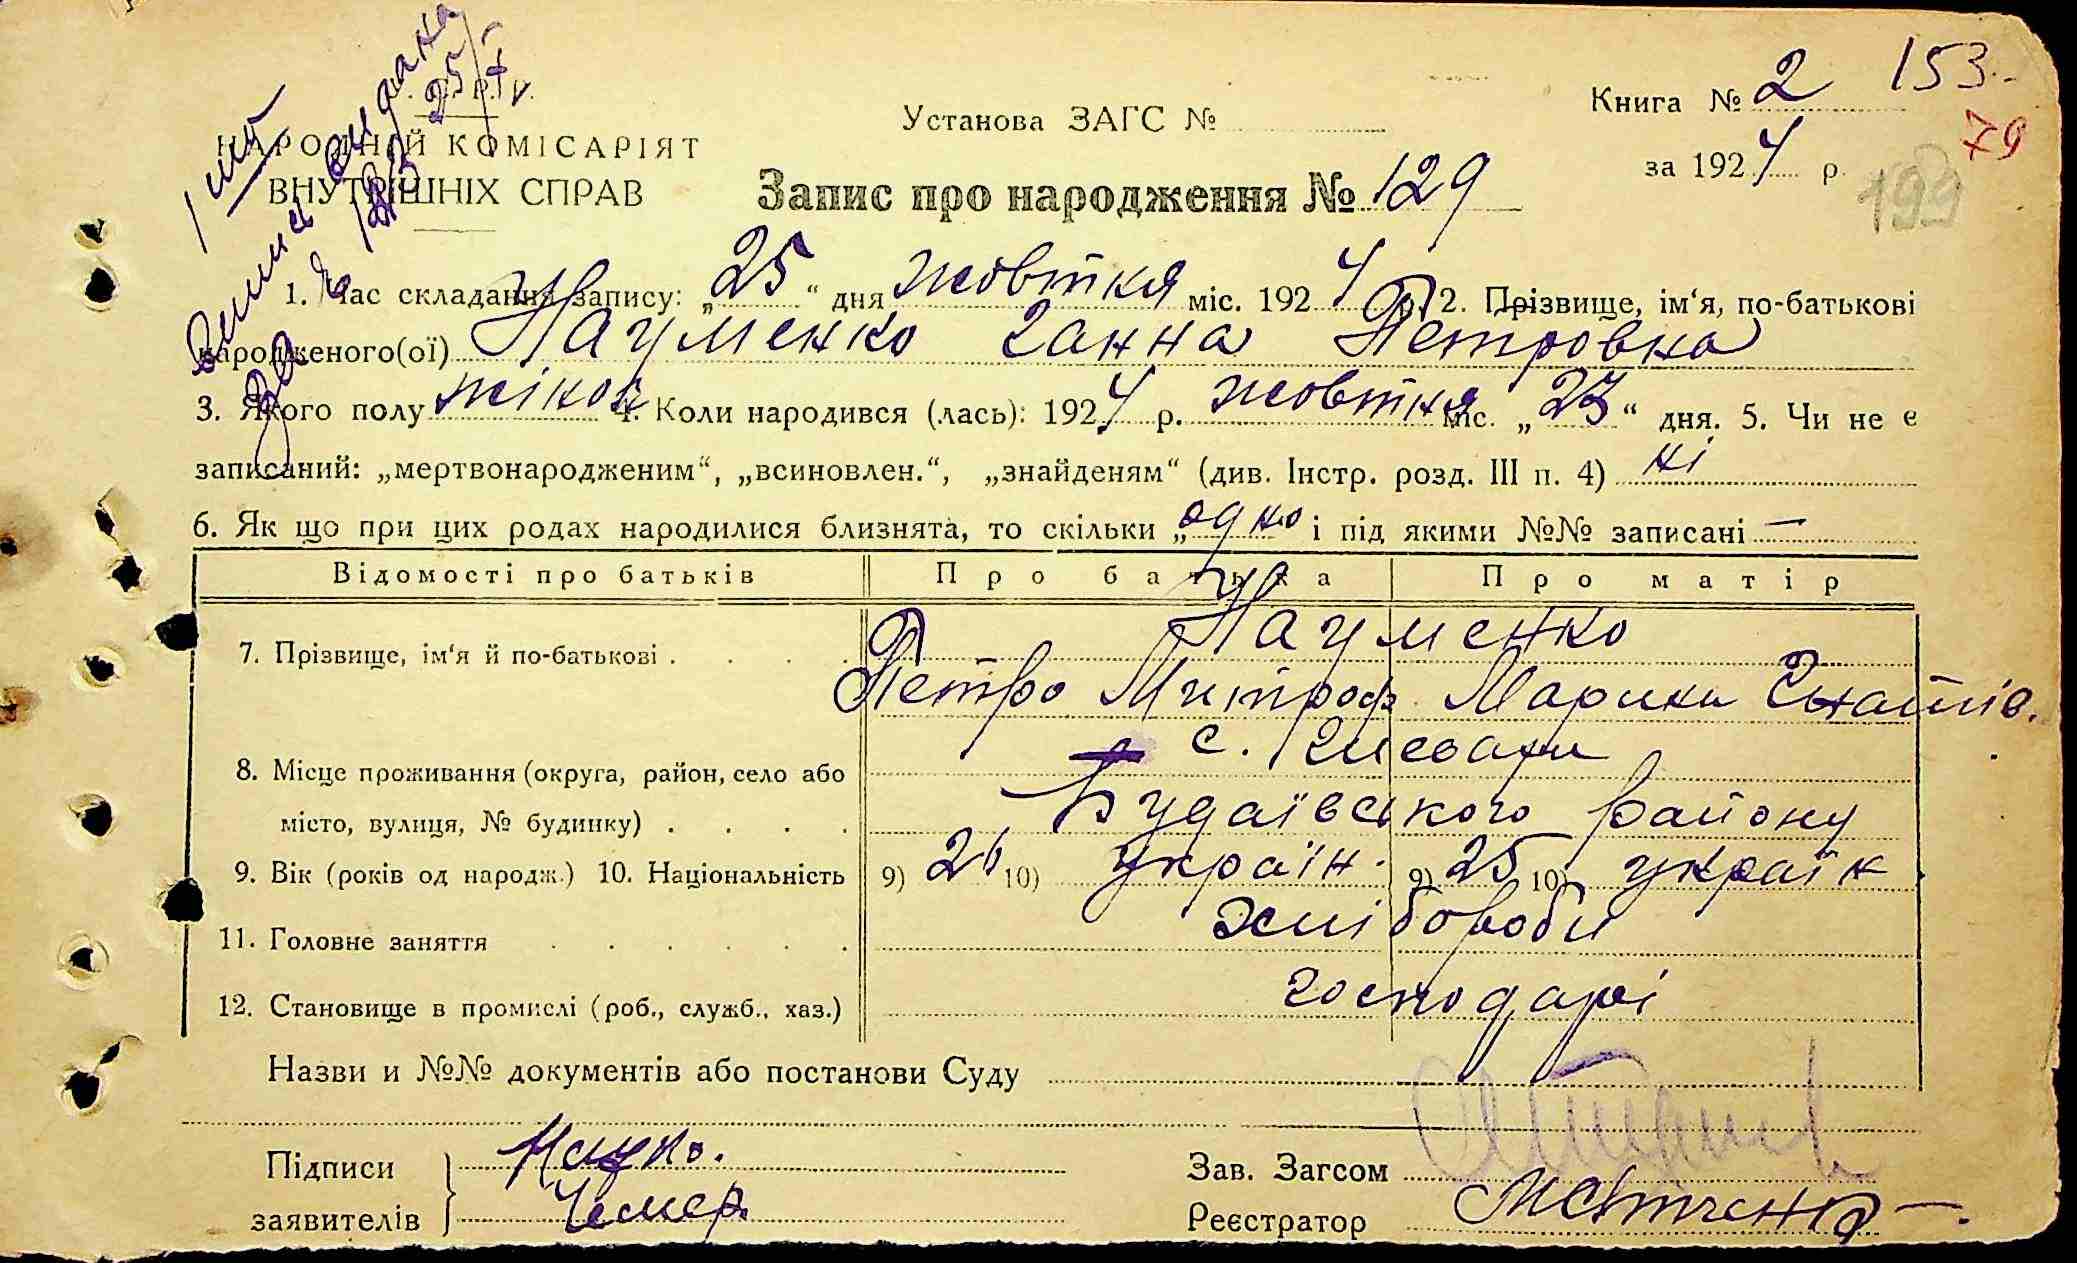 153.
Книга № 2
79
Установа ЗАГС №
за 1924 р.
199
НАРОДНІЙ КОМІСАРІЯТ
ВНУТРІШНІХ СПРАВ
Запис про народження № 129
1. Час складання запису: „25“ дня жовтня міс. 1924 р. 2. Прізвище, ім‘я, по-батькові
народженого(ої) Науменко Ганна Петровна
3. Якого полу жіноч 4. Коли народився (лась): 1924 р. жовтня міс. „23“ дня. 5. Чи не є
записаний: „мертвонародженим“, „всиновлен.“, „знайденям“ (див. Інстр. розд. III п. 4) ні
6. Як що при цих родах народилися близнята, то скільки „одно і під якими №№ записані —
Відомості про батьків Про батька Про матір
Науменко
7. Прізвище, ім‘я й по-батькові .
Петро Митроф. Марики Гнатів.
8. Місце проживання (округа, район, село або
с. Гиевари
місто, вулиця, № будинку) .
Будаївського району
9. Вік (років од народж.) 10. Національність 9) 26 10) україн. 9) 25 10) україн
11. Головне заняття хлібороби
12. Становище в промислі (роб., служб., хаз.) господарі
Назви и №№ документів або постанови Суду
Підписи
заявителів
Зав. Загсом
Реєстратор